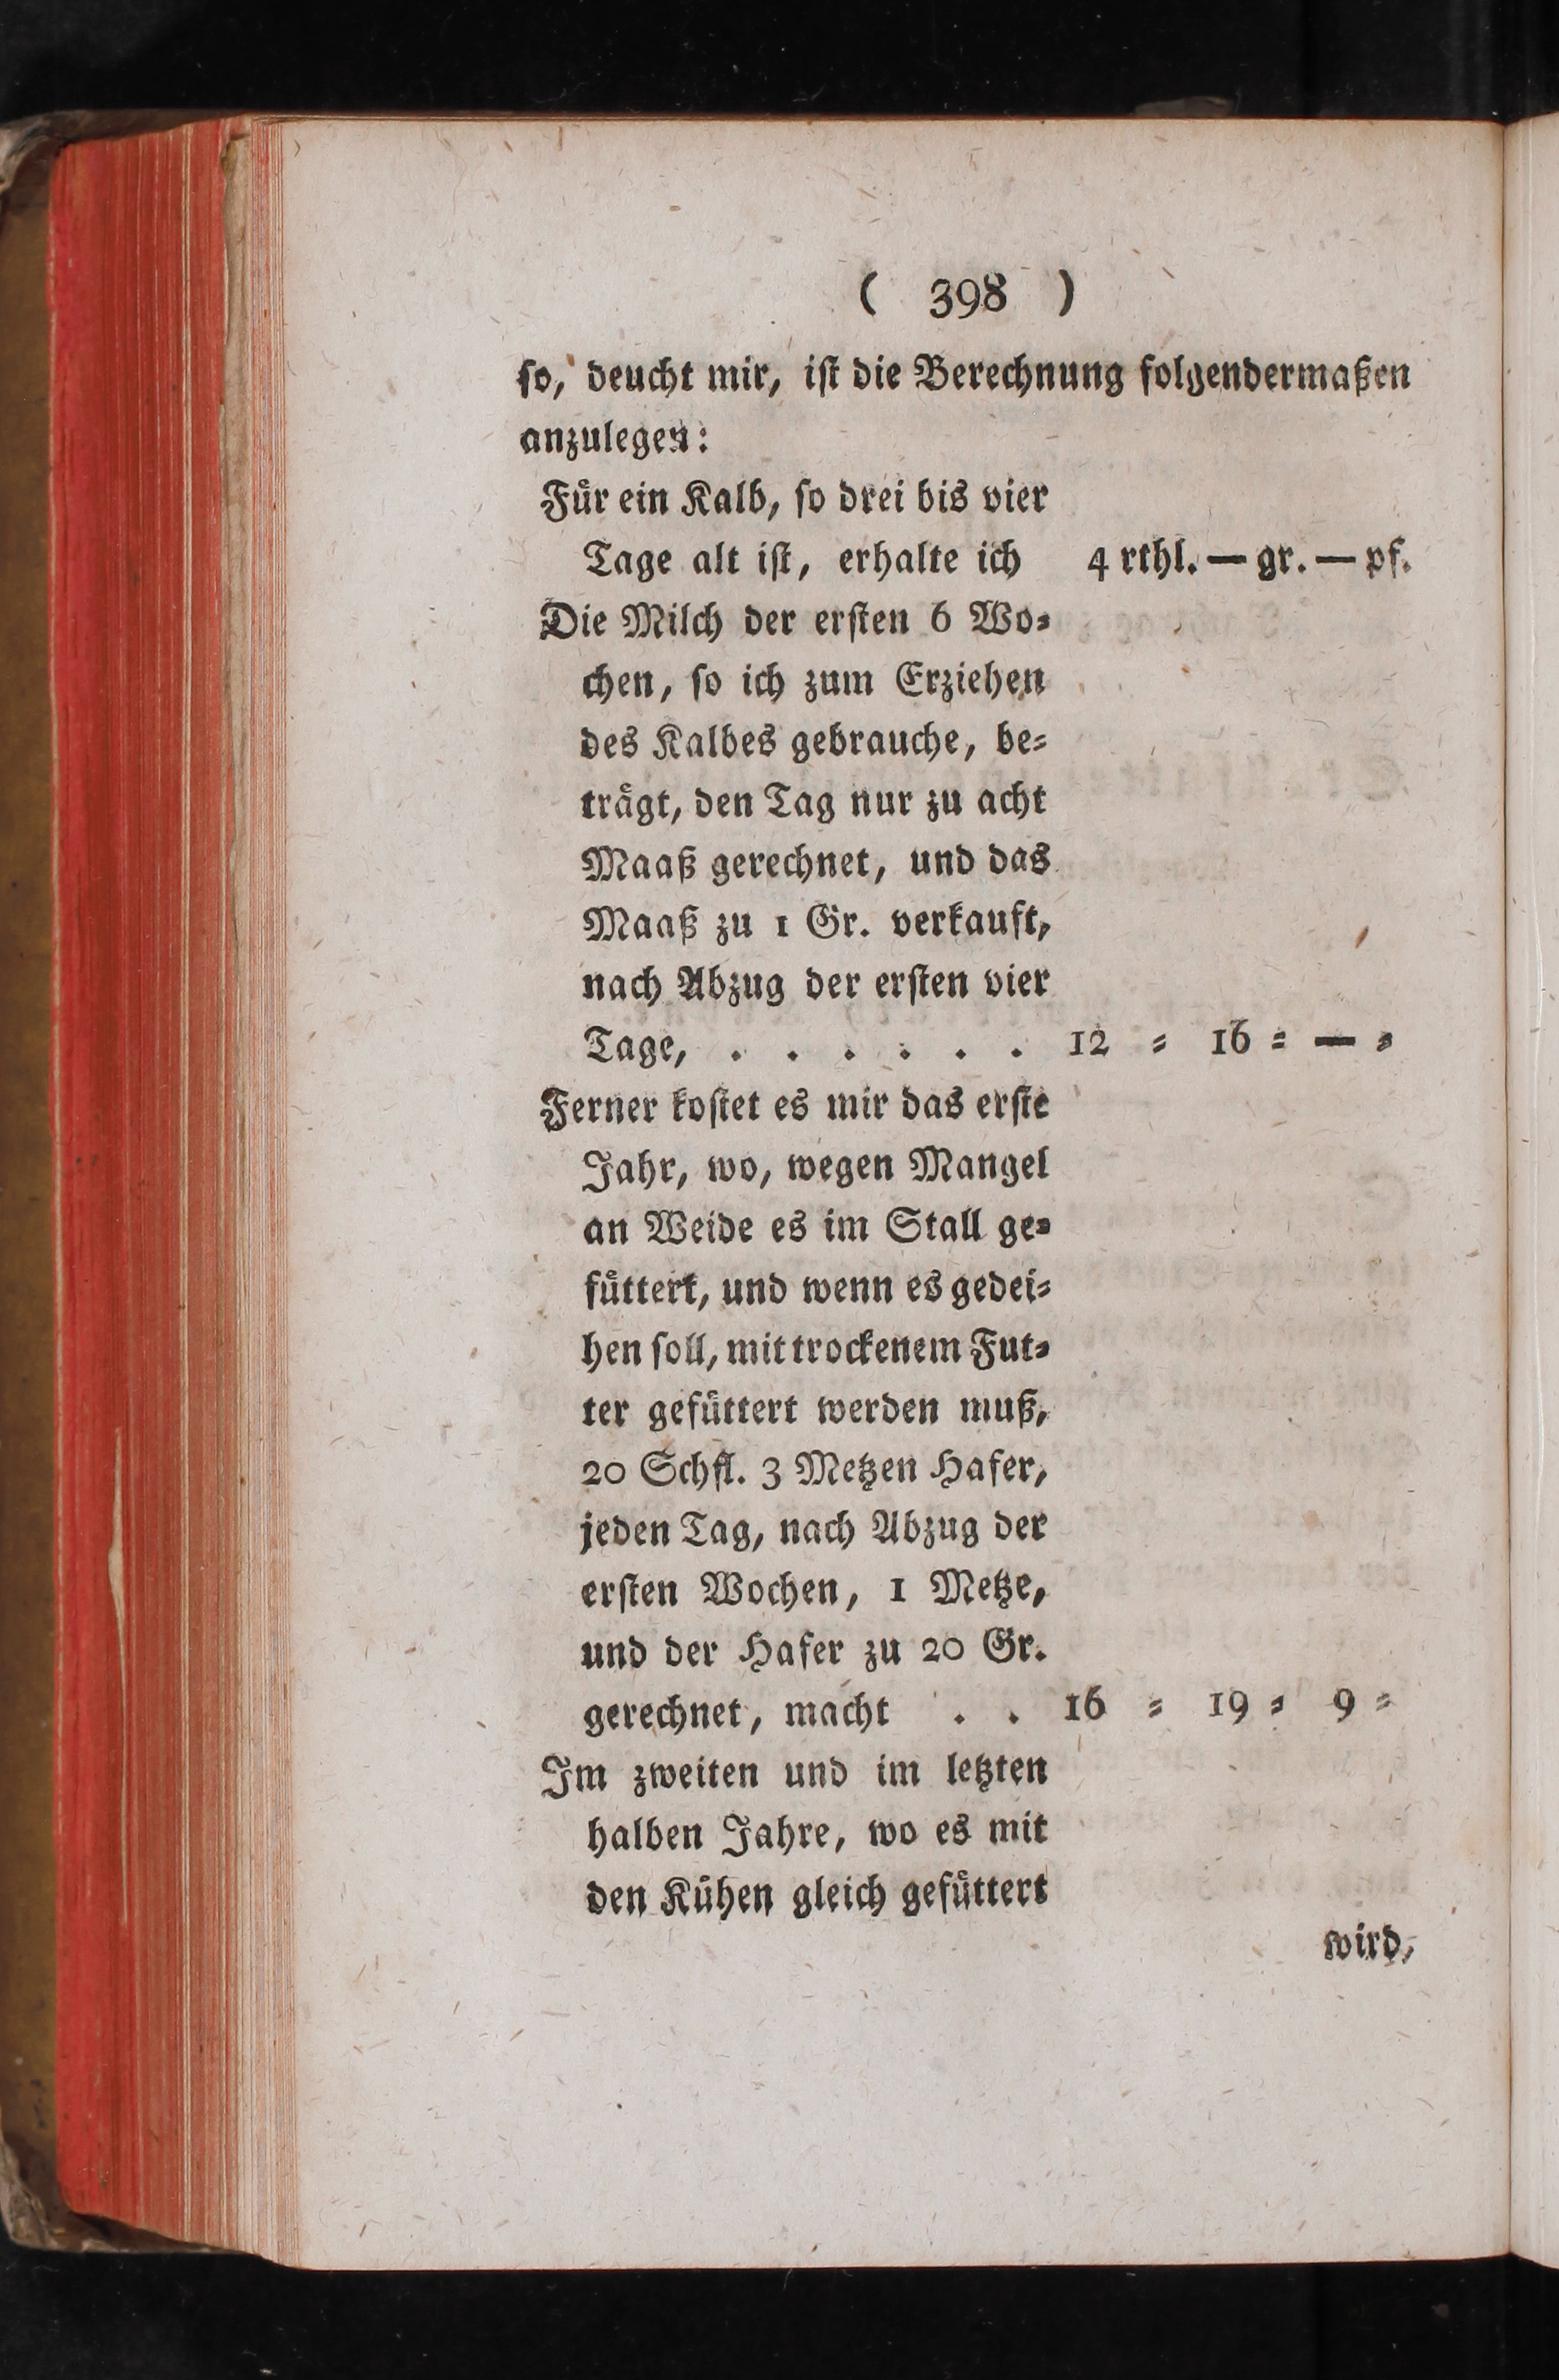 ( 398 )
so, deucht mir, ist die Berechnung folgendermaßen
anzulegen:
Für ein Kalb, so drei bis vier
Tage alt ist, erhalte ich 4 rthl. — gr. — pf.
Die Milch der ersten 6 Wo-
chen, so ich zum Erziehen
des Kalbes gebrauche, be-
trägt, den Tag nur zu acht
Maaß gerechnet, und das
Maaß zu 1 Gr. verkauft,
nach Abzug der ersten vier
Tage, . . . . . . 12 = 16 = — =
Ferner kostet es mir das erste
Jahr, wo, wegen Mangel
an Weide es im Stall ge-
füttert, und wenn es gedei-
hen soll, mit trockenem Fut-
ter gefüttert werden muß,
20 Schfl. 3 Metzen Hafer,
jeden Tag, nach Abzug der
ersten Wochen, 1 Metze,
und der Hafer zu 20 Gr.
gerechnet, macht . . 16 = 19 = 9 =
Im zweiten und im letzten
halben Jahre, wo es mit
den Kühen gleich gefüttert
wird,